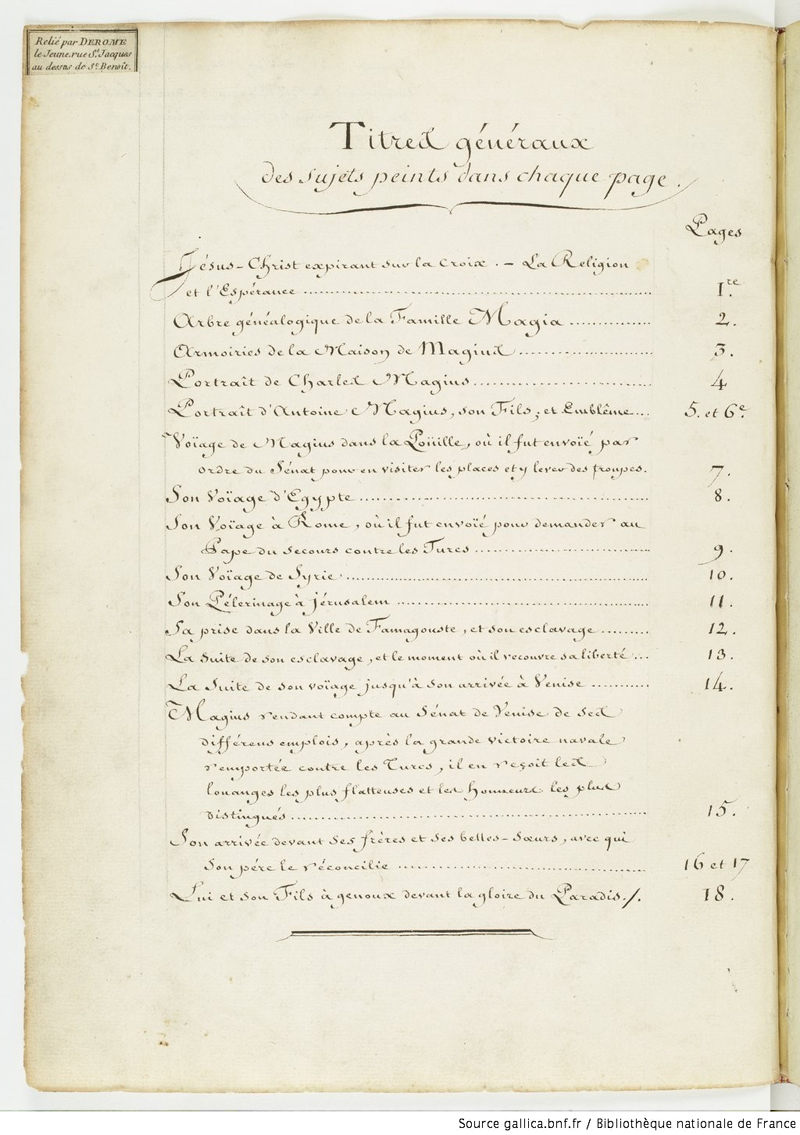 Relié par DEROME
le Jeune, rue St. Jacques
au dessus de St. Benoît.
Titres généraux
des sujets peints dans chaque page.
Pages
Jésus-Christ expirant sur la Croix. - La Religion
et l'Espérance ........ 1re.
Arbre généalogique de la Famille Magia ........ 2.
Armoiries de la Maison de Magius ........ 3.
Portrait de Charles Magius ........ 4
Portrait d'Antoine Magius, son Fils; et Emblême ... 5. et 6e.
Voïage de Magius dans la Poüille, où il fut envoïé par
ordre du Sénat pour en visiter les places et y lever des troupes. 7.
Son Voïage d'Egypte ........ 8.
Son Voïage à Rome, où il fut envoïé pour demander au
Pape du secours contre les Turcs ........ 9.
Son Voïage de Syrie ........ 10.
Son Pélerinage à Jérusalem ........ 11.
Sa prise dans la Ville de Famagouste, et son esclavage ........ 12.
La Suite de son esclavage, et le moment où il recouvre sa liberté ... 13.
La Suite de son voïage jusqu'à son arrivée à Venise ........ 14.
Magius rendant compte au Sénat de Venise de ses
différens emplois, après la grande victoire navale
remportée contre les Turcs, il en reçoit les
louanges les plus flatteuses et les honneurs les plus
distingués ........ 15.
Son arrivée devant ses frères et ses belles-sœurs, avec qui
son père le réconcilie ........ 16 et 17
Lui et son Fils à genoux devant la gloire du Paradis./. 18.
Source gallica.bnf.fr / Bibliothèque nationale de France